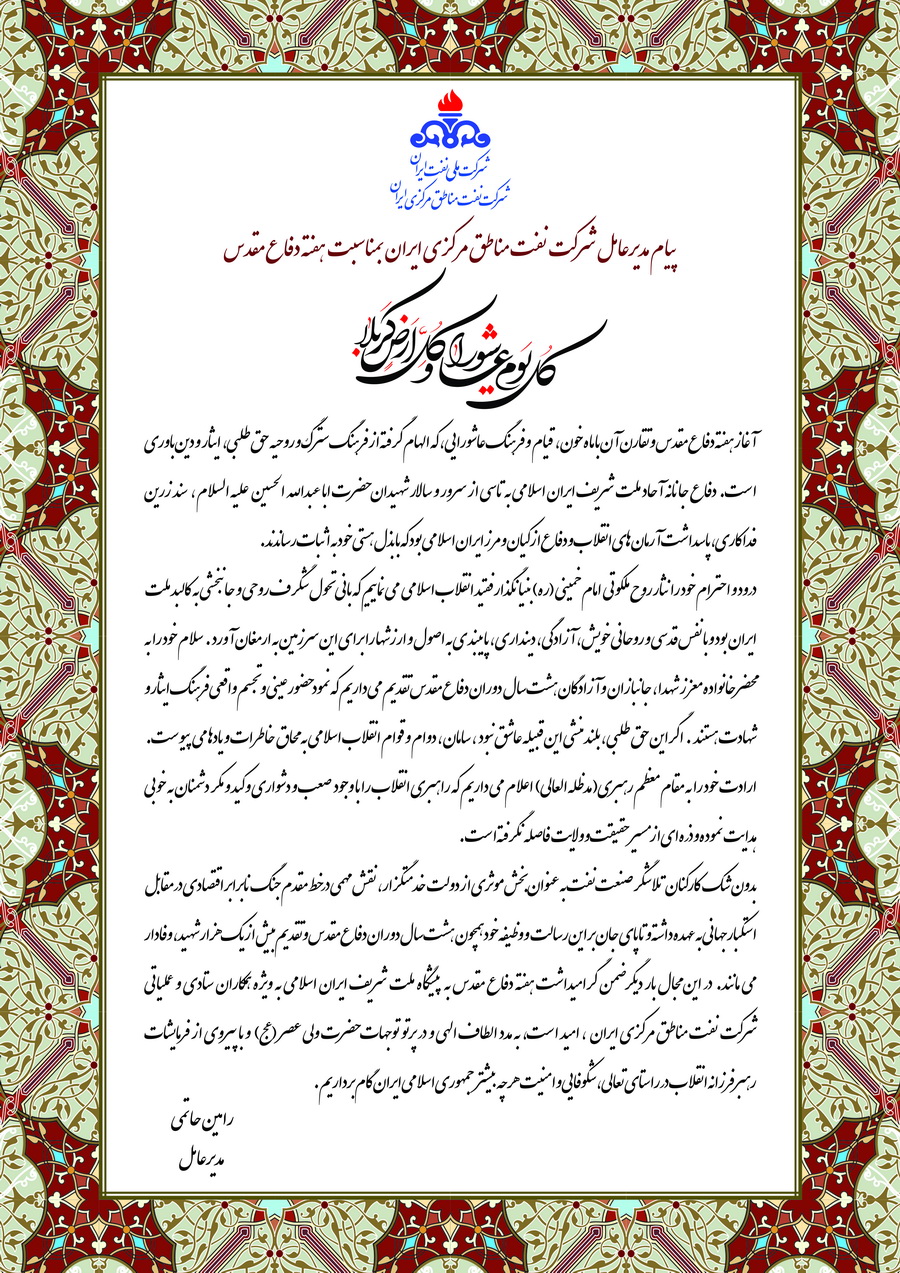 شرکت ملی نفت ایران
شرکت نفت مناطق مرکزی ایران
پیام مدیرعامل شرکت نفت مناطق مرکزی ایران بمناسبت هفته دفاع مقدس
کل یوم عاشورا و کل ارض کربلا
آغاز هفته دفاع مقدس و تقارن آن با ماه خون، قیام و فرهنگ عاشورایی، که الهام گرفته از فرهنگ سترگ و روحیه حق طلبی، ایثار و دین باوری
است. دفاع جانانه آحاد ملت شریف ایران اسلامی به تاسی از سرور و سالار شهیدان حضرت اباعبدالله الحسین علیه السلام ، سند زرین
فداکاری، پاسداشت آرمان های انقلاب و دفاع از کیان و مرز ایران اسلامی بود که با بذل هستی خود به اثبات رساندند.
درود و احترام خود را نثار روح ملکوتی امام خمینی (ره) بنیانگذار فقید انقلاب اسلامی می نماییم که بانی تحول شگرف روحی و جانبخشی به کالبد ملت
ایران بود و با نفس قدسی و روحانی خویش، آزادگی، دینداری، پایبندی به اصول و ارزشها را برای این سرزمین به ارمغان آورد. سلام خود را به
محضر خانواده معزز شهدا، جانبازان و آزادگان هشت سال دوران دفاع مقدس تقدیم می داریم که نمود حضور عینی و تجسم واقعی فرهنگ ایثار و
شهادت هستند . اگر این حق طلبی، بلند منشی این قبیله عاشق نبود ، سامان، دوام و قوام انقلاب اسلامی به محاق خاطرات و یادها می پیوست.
ارادت خود را به مقام معظم رهبری (مدظله العالی) اعلام می داریم که راهبری انقلاب را با وجود صعب و دشواری و کید و مکر دشمنان به خوبی
هدایت نموده و ذره ای از مسیر حقیقت و ولایت فاصله نگرفته است.
بدون شک کارکنان تلاشگر صنعت نفت به عنوان بخش موثری از دولت خدمتگزار، نقش مهمی در خط مقدم جنگ نابرابر اقتصادی در مقابل
استکبار جهانی به عهده داشته و تا پای جان بر این رسالت و وظیفه خود همچون هشت سال دوران دفاع مقدس و تقدیم بیش از یک هزار شهید، وفادار
می مانند. در این مجال بار دیگر ضمن گرامیداشت هفته دفاع مقدس به پیشگاه ملت شریف ایران اسلامی به ویژه همکاران ستادی و عملیاتی
شرکت نفت مناطق مرکزی ایران ، امید است، به مدد الطاف الهی و در پرتو توجهات حضرت ولی عصر (عج) و با پیروی از فرمایشات
رهبر فرزانه انقلاب در راستای تعالی، شکوفایی و امنیت هرچه بیشتر جمهوری اسلامی ایران گام برداریم .
رامین حاتمی
مدیرعامل